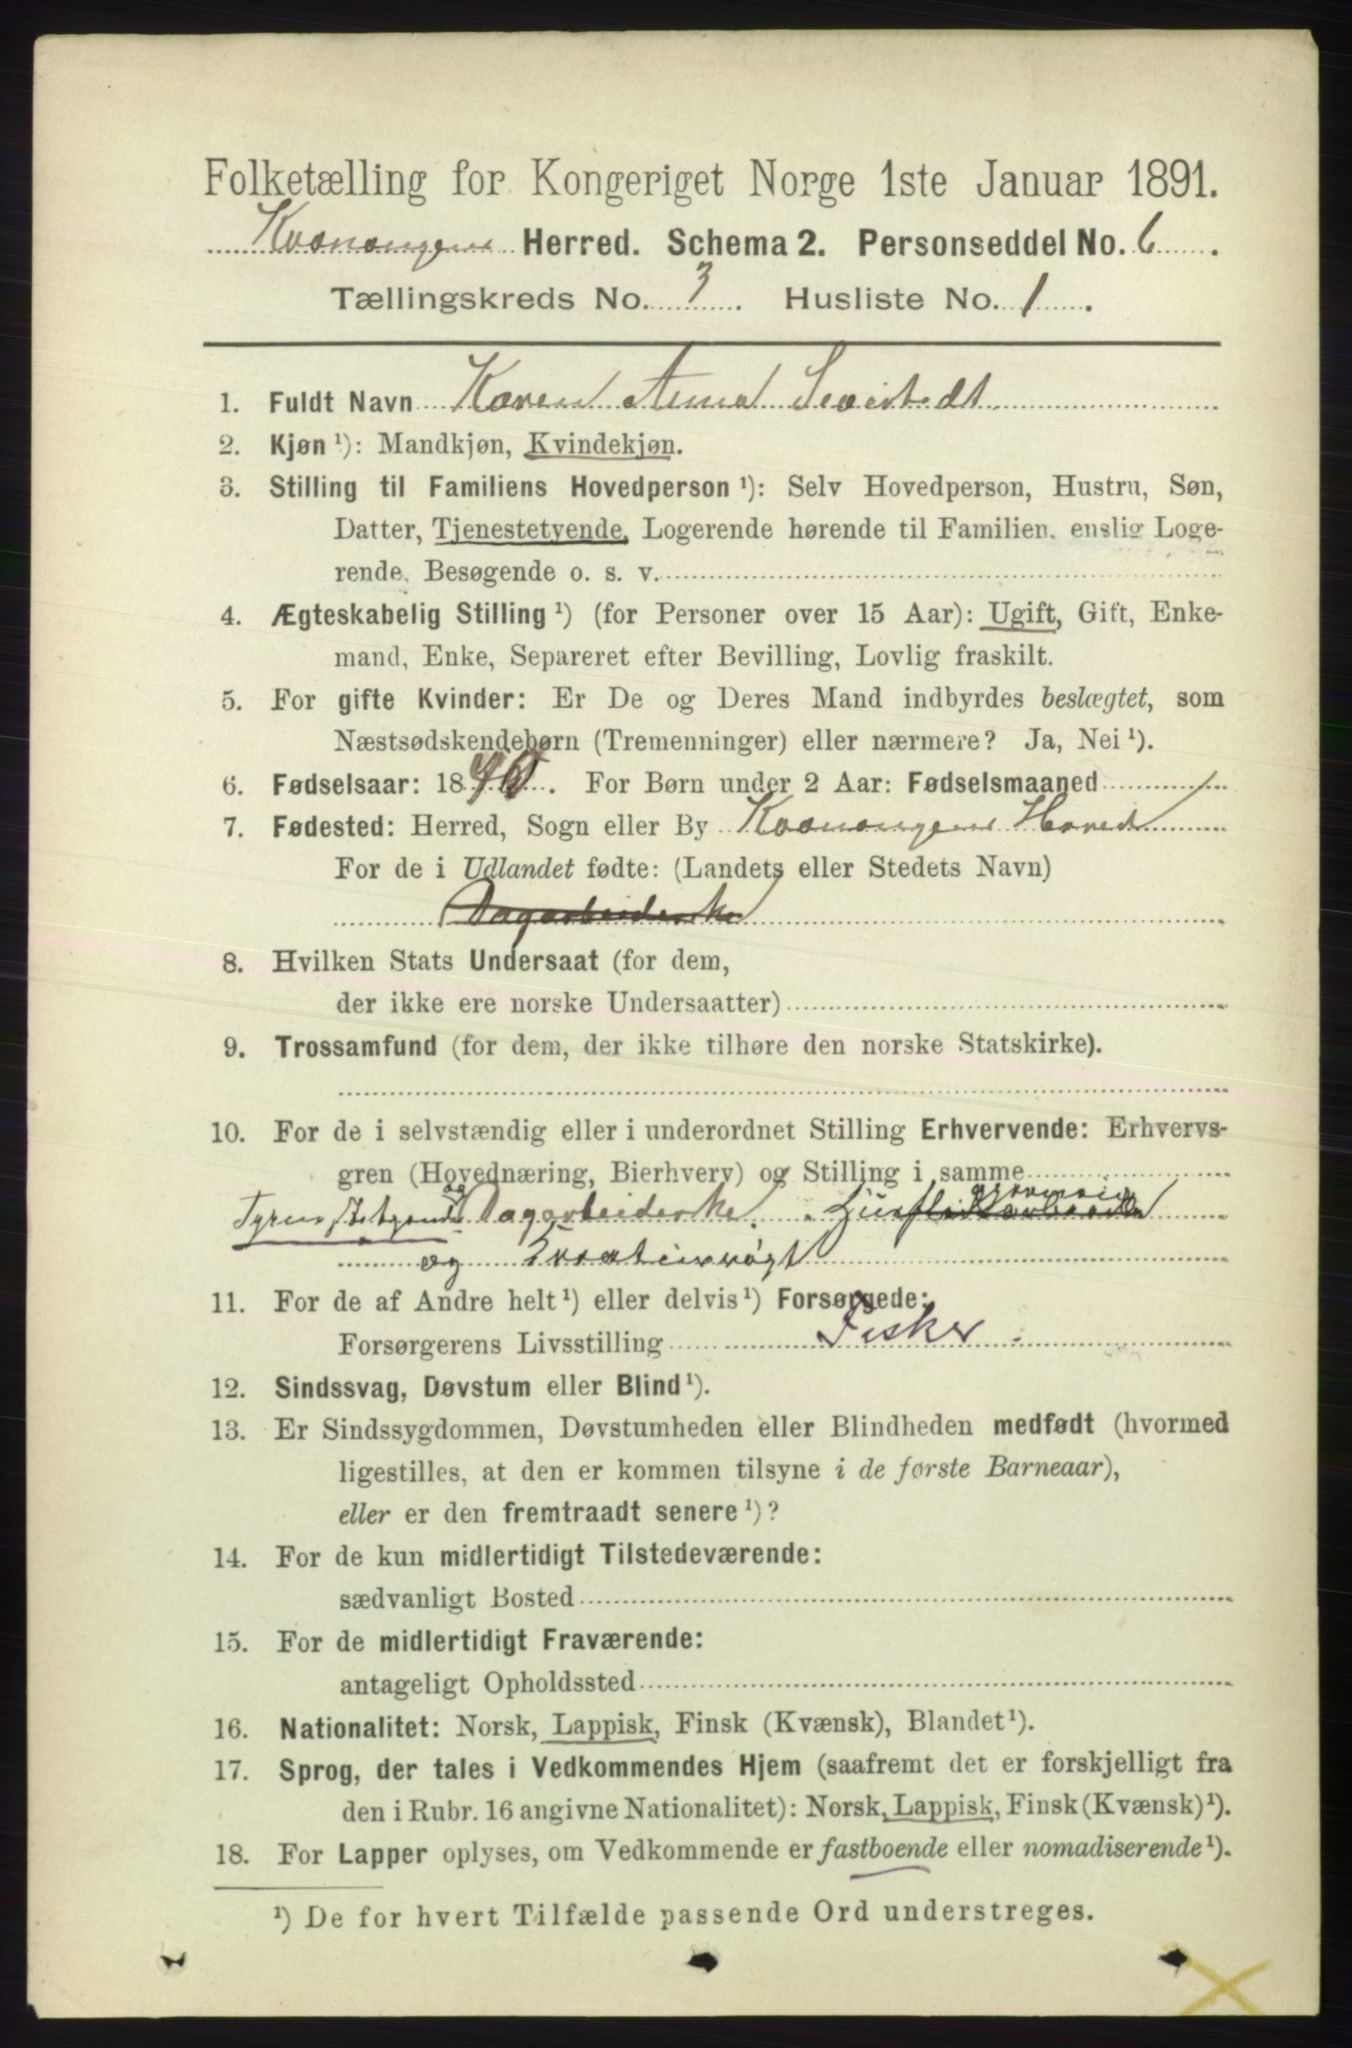 Folketælling for Kongeriget Norge 1ste Januar 1891.
Kvænangens Herred. Schema 2. Personseddel No. 6.
Tællingskreds No. 3. Husliste No. 1.
1. Fuldt Navn Karen Anna
2. Kjøn ¹): Mandkjøn, Kvindekjøn.
3. Stilling til Familiens Hovedperson ¹): Selv Hovedperson, Hustru, Søn,
Datter, Tjenestetyende, Logerende hørende til Familien, enslig Loge-
rende, Besøgende o. s. v.
4. Ægteskabelig Stilling ¹) (for Personer over 15 Aar): Ugift, Gift, Enke-
mand, Enke, Separeret efter Bevilling, Lovlig fraskilt.
5. For gifte Kvinder: Er De og Deres Mand indbyrdes beslægtet, som
Næstsødskendebørn (Tremenninger) eller nærmere? Ja, Nei ¹).
6. Fødselsaar: 1840. For Børn under 2 Aar: Fødselsmaaned
7. Fødested: Herred, Sogn eller By Kvænangens Herred
For de i Udlandet fødte: (Landets eller Stedets Navn)
Dagarbeiderske
8. Hvilken Stats Undersaat (for dem,
der ikke ere norske Undersaatter)
9. Trossamfund (for dem, der ikke tilhøre den norske Statskirke).
10. For de i selvstændig eller i underordnet Stilling Erhvervende: Erhvervs-
gren (Hovednæring, Bierhverv) og Stilling i samme
og Dagarbeiderske.
og Kreaturrøgt
11. For de af Andre helt ¹) eller delvis ¹) Forsørgede:
Forsørgerens Livsstilling Fisker.
12. Sindssvag, Døvstum eller Blind ¹).
13. Er Sindssygdommen, Døvstumheden eller Blindheden medfødt (hvormed
ligestilles, at den er kommen tilsyne i de første Barneaar),
eller er den fremtraadt senere ¹)?
14. For de kun midlertidigt Tilstedeværende:
sædvanligt Bosted
15. For de midlertidigt Fraværende:
antageligt Opholdssted
16. Nationalitet: Norsk, Lappisk, Finsk (Kvænsk), Blandet ¹).
17. Sprog, der tales i Vedkommendes Hjem (saafremt det er forskjelligt fra
den i Rubr. 16 angivne Nationalitet): Norsk, Lappisk, Finsk (Kvænsk) ¹).
18. For Lapper oplyses, om Vedkommende er fastboende eller nomadiserende ¹).
¹) De for hvert Tilfælde passende Ord understreges.